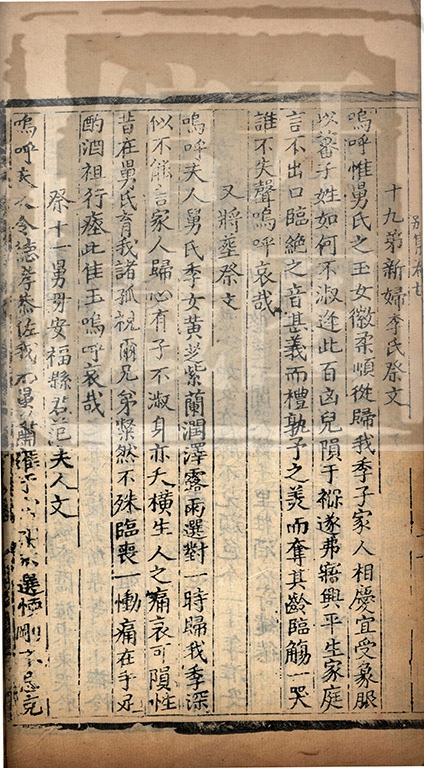 十九弟新婦李氏祭文
嗚呼惟舅氏之玉女徽柔順從歸我季子家人相慶宜受象服
以蕃子姓如何不淑逢此百凶兒隕于褓遂弗寤興平生家庭
言不出口臨絕之音甚義而禮孰予之美而奪其齡臨觴一哭
誰不失聲嗚呼哀哉
又將塟祭文
嗚呼夫人舅氏季女黃芝紫蘭潤澤露雨選對一時歸我季深
似不能言家人歸心有子不淑身亦夭橫生人之痛哀可隕性
昔在舅氏育我諸孤視爾兄弟粲然不殊臨喪一慟痛在手足
酌酒祖行瘞此佳玉嗚呼哀哉
祭十一舅母安福縣君范夫人文
嗚呼夫人令德孝恭佐我舅